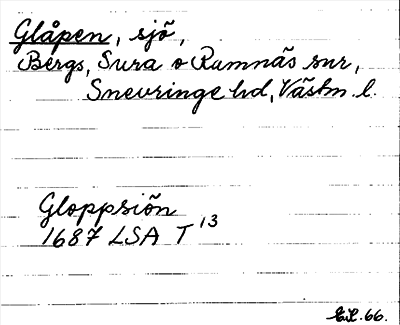 Glåpen, sjö,
Bergs, Sura o Ramnäs snr,
Snevringe hd, Västm. l.
Gloppsiön
1687 LSA T 13
E.L. 66.